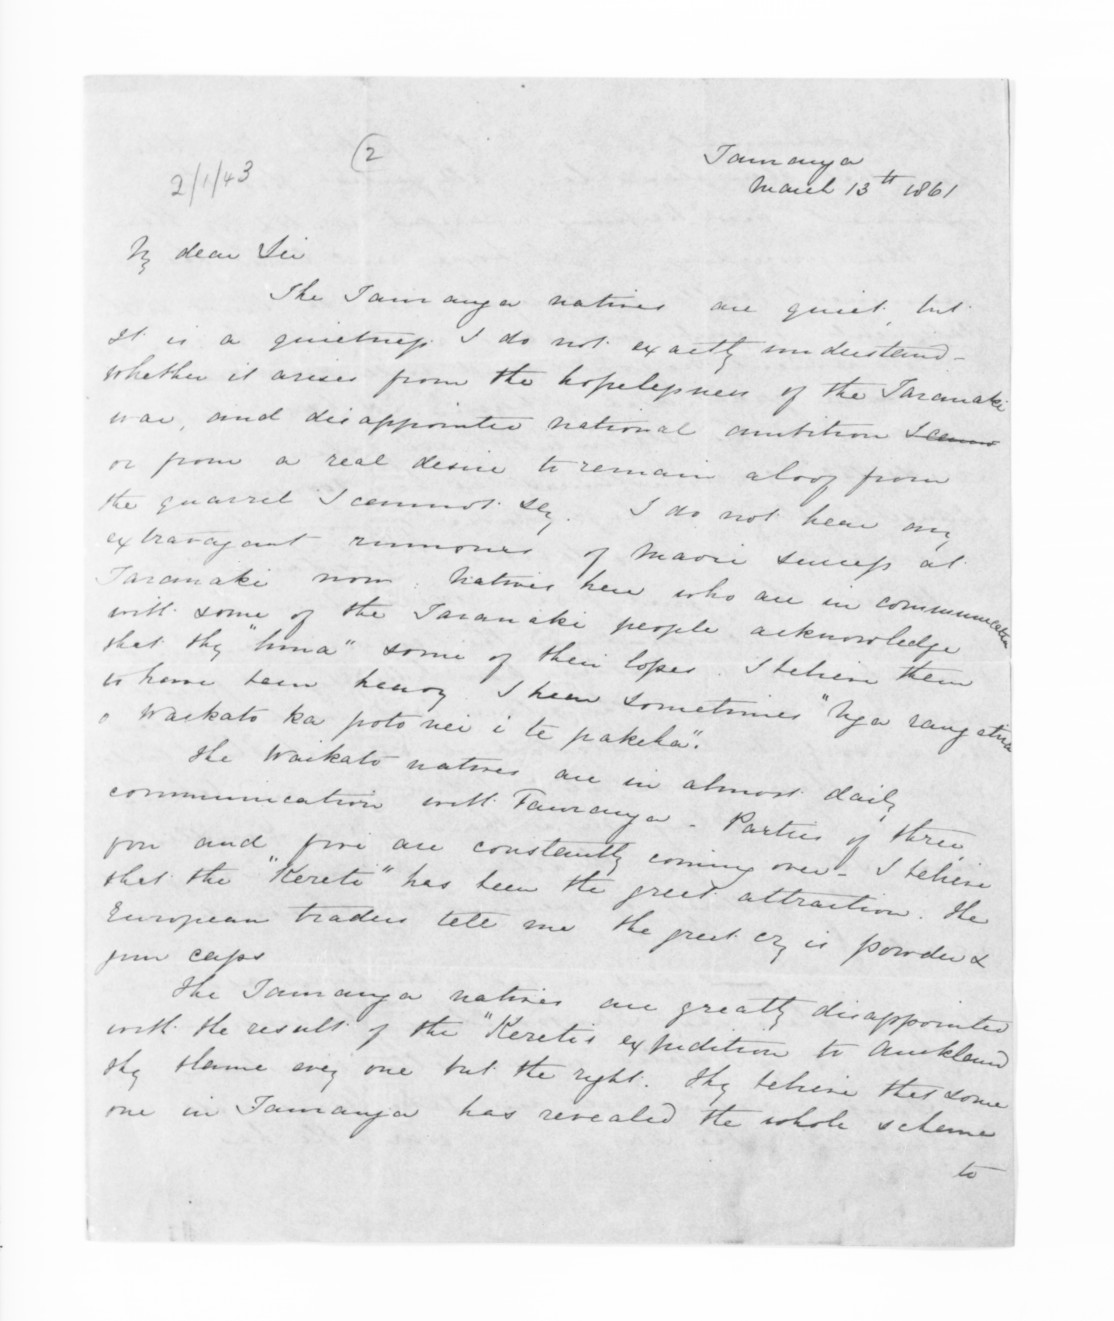 2
2/1/43
Tauranga
March 13th 1861
My dear Sir
The Tauranga natives are quiet, but
it is a quietness I do not exactly understand -
whether it arises from the hopelessness of the Taranaki
war, and disappointed national ambition
or from a real desire to remain aloof from
the quarrel I cannot say. I do not hear any
extravagant rumours of Maori success at
Taranaki now. Natives here who are in communication
with some of the Taranaki people acknowledge
that they "hina" some of their losses. I believe them
to have been heavy. I hear sometimes "Nga rangatira
o Waikato ka poto nei i te pakeha".
The Waikato natives are in almost daily
communication with Tauranga - Parties of three,
four and five are constantly coming over - I believe
that the "Kereti" has been the great attraction. The
European traders tell me the great cry is powder &
gun caps
The Tauranga natives are greatly disappointed
with the result of the "Kereti's expedition to Auckland
they blame every one but the right. They believe that some
one in Tauranga has revealed the whole scheme
to